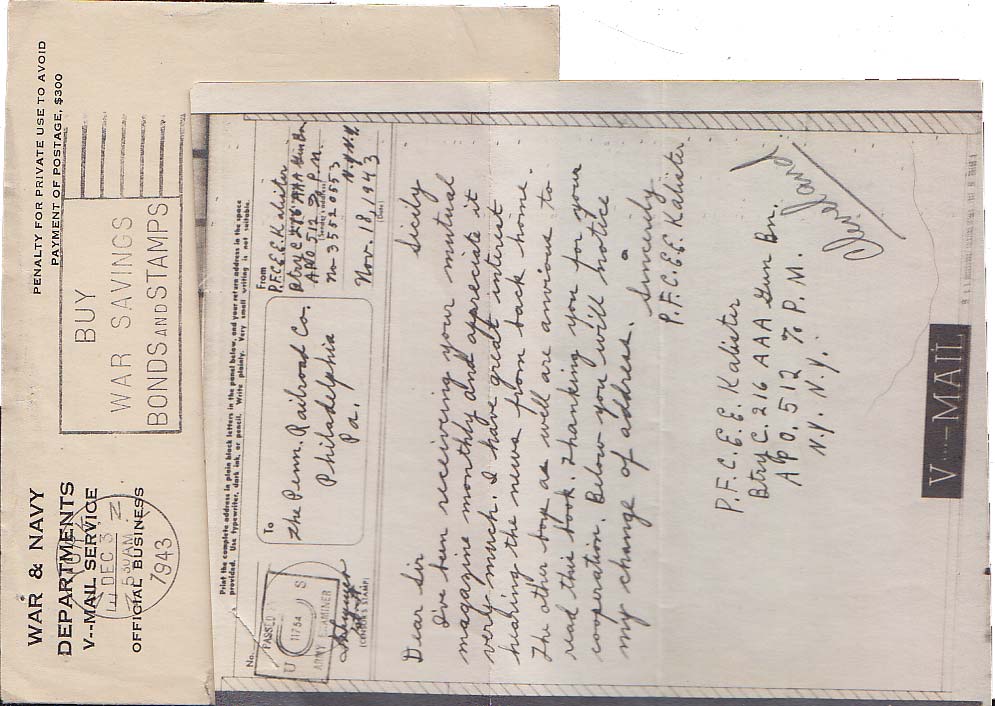 WAR & NAVY
DEPARTMENTS
V--MAIL SERVICE
OFFICIAL BUSINESS
PENALTY FOR PRIVATE USE TO AVOID
PAYMENT OF POSTAGE, $300
DEC 3
30 AM
1943
BUY
WAR SAVINGS
BONDS AND STAMPS
Print the complete address in plain block letters in the panel below, and your return address in the space
provided. Use typewriter, dark ink, or pencil. Write plainly. Very small writing is not suitable.
No.
PASSED
U S
11754
ARMY EXAMINER
(CENSOR'S STAMP)
To
The Penn. Railroad Co.
Philadelphia
Pa.
From
P.F.C. E.E. Kalister
Btry C 216 AAA Gun Bn
APO 512 % P.M.
No- 35520553 N.Y. N.Y.
Nov. 18, 1943
(Date)
Sicily
Dear Sir
I've been receiving your mutual
magazine monthly and appreciate it
very much. I have great interest
hearing the news from back home.
The other boys as well are anvious to
read this book. Thanking you for your
cooperation. Below you will notice
my change of address.
Sincerely
P.F.C. E.E. Kalister
P.F.C. E.E. Kalister
Btry C. 216 AAA Gun Bn.
APO. 512 % P.M.
N.Y. N.Y.
Cleveland
V--MAIL